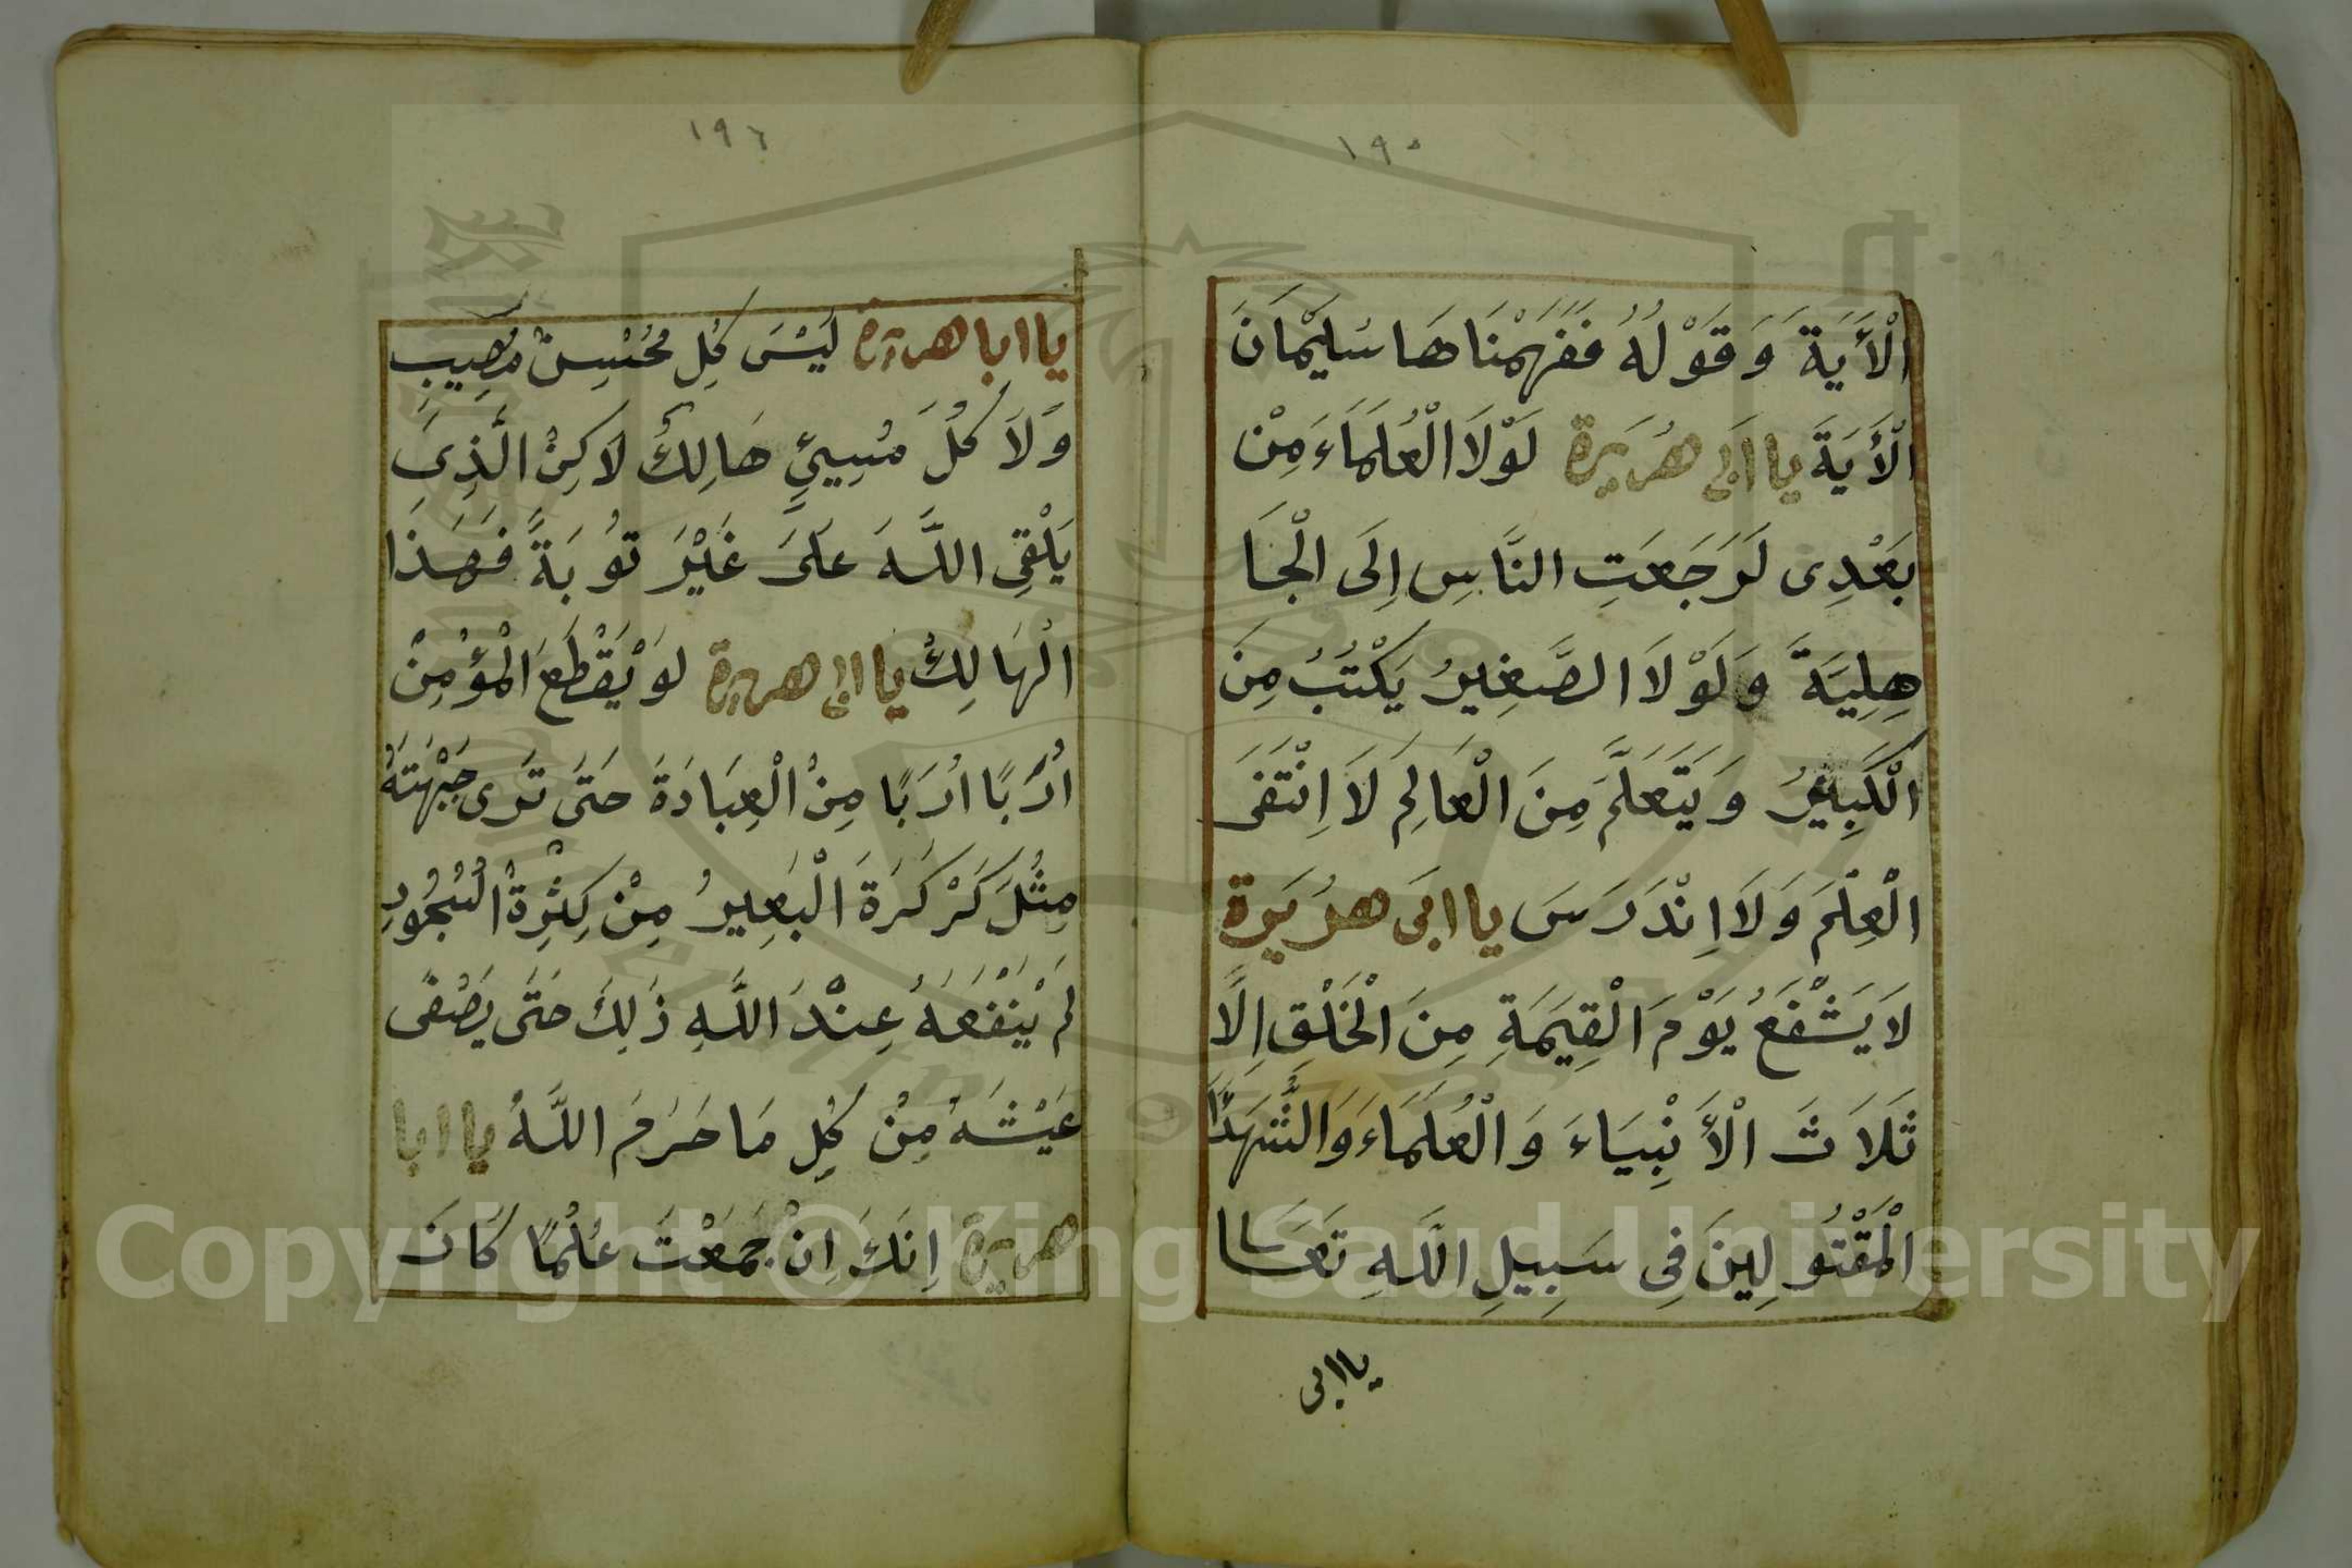 ١٩٥
الْأَيَةَ وَقَوْلُهُ فَفَهَّمْنَاهَا سُلَيْمَانَ
الْأَيَةَ يا ابى هُرَيرة لَوْلَا الْعُلَمَاءَ مِنْ
بَعْدِى لَرَجَعَتِ النَّاسِ إِلَى الْجَا
هِلِيَةَ وَلَوْلَا الصَّغِيرُ يَكْتُبُ مِنَ
الْكَبِيرُ وَيَتَعَلَّمَ مِنَ الْعَالِمِ لَا اِنْتَفَى
الْعِلْمَ وَلَا اِنْدَرَسَ يا ابَى هرُيَرة
لَا يَشْفَعُ يَوْمَ الْقِيَمَةِ مِنَ الْخَلْقِ اِلَّا
ثَلَاثَ الْأَنْبِيَاءَ وَالْعُلَمَاءَ وَالشُّهَدَا
الْمَقْتُولِينَ فِى سَبِيلِ اللَّهِ تَعَالَا
يا ابى
١٩٦
يا ابا هريرة لَيْسَ كُلِ مُحْسِنْ مُصِيبِ
وَلَا كُلَ مُسِيئٍ هَالِكُ لَاكِنْ الَّذِى
يَلْقِى اللَّهَ عَلَىَ غَيْرَ تَوُبَةً فَهَذَا
الْهَالِكُ يا ابى هريرة لَوْ يَقْطَعَ الْمُؤْمِنْ
اَرَبًا اَرَبًا مِنْ الْعِبَادَةَ حَتَى تَرَى جَبْهَتَهُ
مِثْلَ كَرْكَرَةَ الْبَعِيرُ مِنْ كِثْرِةْ السُجُودِ
لَمْ يَنْفَعَهُ عِنْدَ اللَّهِ ذَلِكَ حَتَّى يَصْفى
عَيْشَهُ مِنْ كُلِ مَا حَرَمَ اللَّهُ يا ابا
هريرة اِنَكَ اِنْ جَمَعْتَ عِلْمًا كَانَ
Copyright © King Saud University